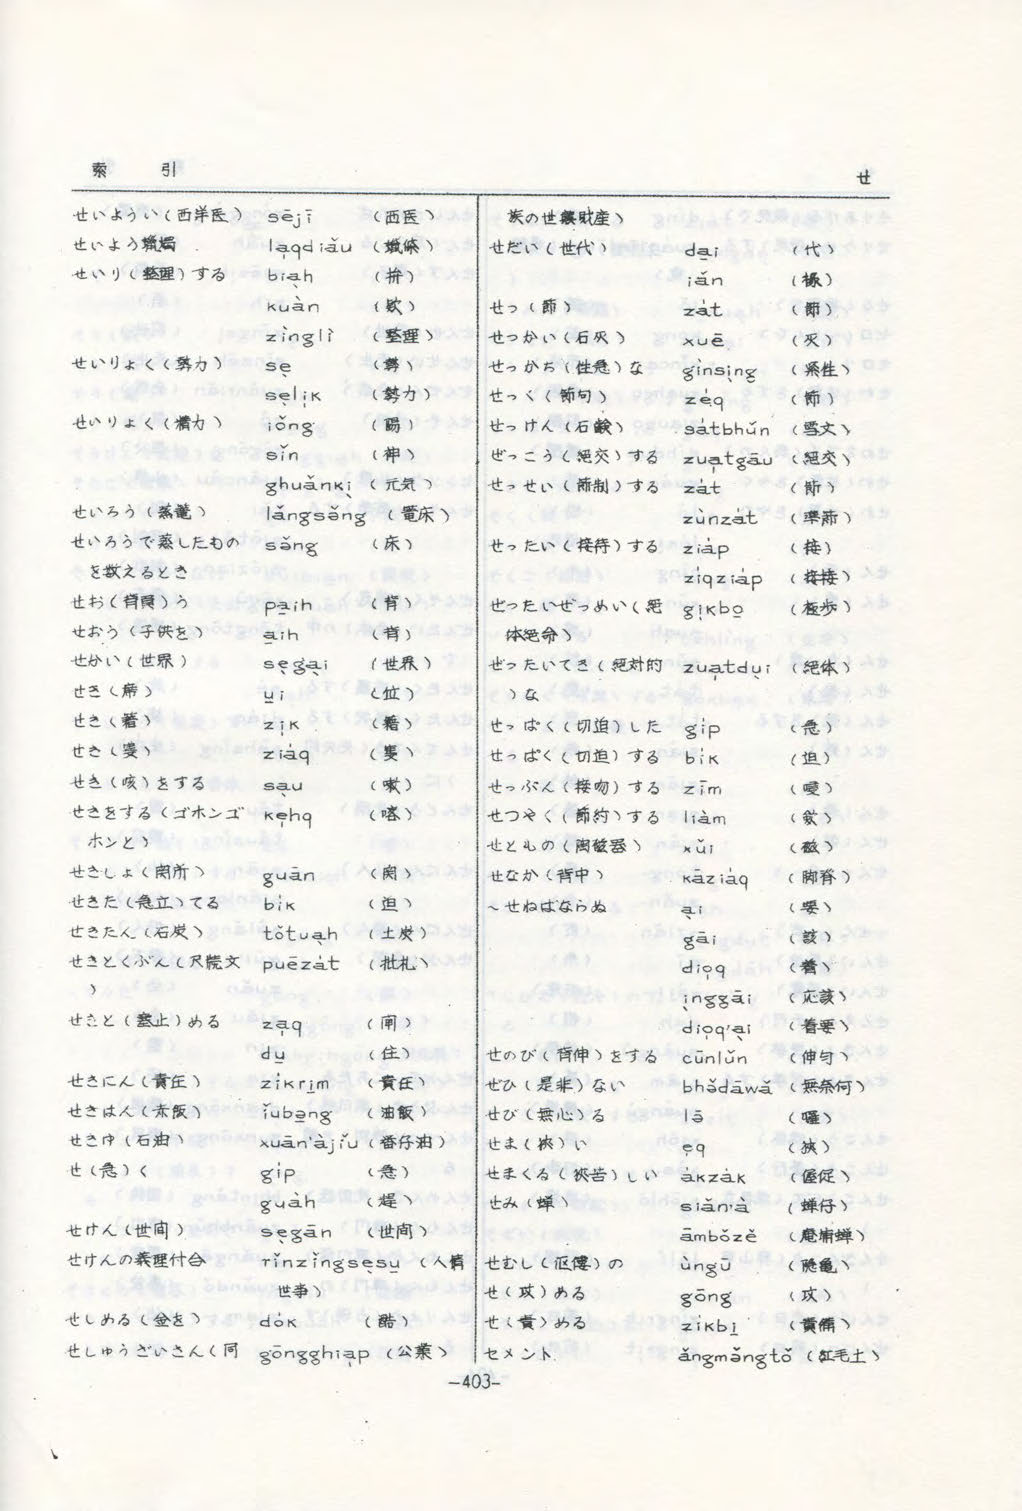 索 引
せ
せいようい(西洋医) sējī (西医)
せいよう蠟燭 la̍qdiǎu (蠟條)
せいり(整理)する biạh (拚)
kuàn (欵)
zìnglì (整理)
せいりょく(勢力) sẹ (勢)
sẹlịk (勢力)
せいりょく(精力) iǒng
sǐn (神)
ghuǎnkị (元気)
せいろう(蒸籠) lǎngsǒng
せいろうで蒸したもの sǒng (床)
を数えるとき
せお(背負)う pa̱ih (背)
せおう(子供を) a̱ih (背)
せかい(世界) sẹgại (世界)
せき(席) u̱i (位)
せき(籍) zịk (籍)
せき(隻) ziáq (隻)
せき(咳)をする sạu (嗽)
せきをする(ゴホンゴ kẹhq (喀)
ホンと)
せきしょ(関所) guān (関)
せきた(急立)てる bik (迫)
せきたん(石炭) tǒtuạh (土炭)
せきとくぶん(尺牘文 puēzát (批札)
)
せきと(塞止)める zạq (閘)
du̱ (住)
せきにん(責任) zikrịm (責任)
せきはん(赤飯) ǐubẹng (油飯)
せきゆ(石油) xuān'àjǐu (番仔油)
せ(急)く gip (急)
guàh
せけん(世間) sẹgān (世間)
せけんの義理付合 rǐnzǐngsẹsu̱ (人情
世事)
せしめる(金を) dók (酷)
せしゅうざいさん(同 gōngghiạp (公業)
族の世襲財産)
せだい(世代) da̱i (代)
iǎn
せつ(節) zát (節)
せっかい(石灰) xuē (灰)
せっかち(性急)な gǐnsịng (緊性)
せっく(節句) zéq (節)
せっけん(石鹸) sátbhǔn (雪文)
ぜっこう(絶交)する zuạtgāu (絶交)
せっせい(節制)する zát (節)
zùnzát (準節)
せったい(接待)する ziáp (接)
ziqziáp
ぜったいぜつめい(絶 gịkbo̱ (極歩)
体絶命)
ぜったいてき(絶対的 zuạtdu̱i (絶体)
)な
せっぱく(切迫)した gip (急)
せっぱく(切迫)する bik (迫)
せっぷん(接吻)する zīm
せつやく(節約)する liàm
せともの(陶磁器) xǔi (磁)
せなか(背中) kāziáq (脚脊)
~せねばならぬ ại (要)
gāi (該)
diọq (着)
ịnggāi (応該)
diọq'ại (着要)
せのび(背伸)をする cūnlǔn (伸匀)
ぜひ(是非)ない bhǒdāwǎ (無奈何)
せび(無心)る
せま(狭)い ẹq (狭)
せまくる(狭苦)しい ákzák (偓促)
せみ(蝉) siǎn'à (蝉仔)
āmbǒzě
せむし(伛僂)の ùngū
せ(攻)める gōng (攻)
せ(責)める zikbị (責備)
セメント ǎngmǒngtǒ (紅毛土)
-403-